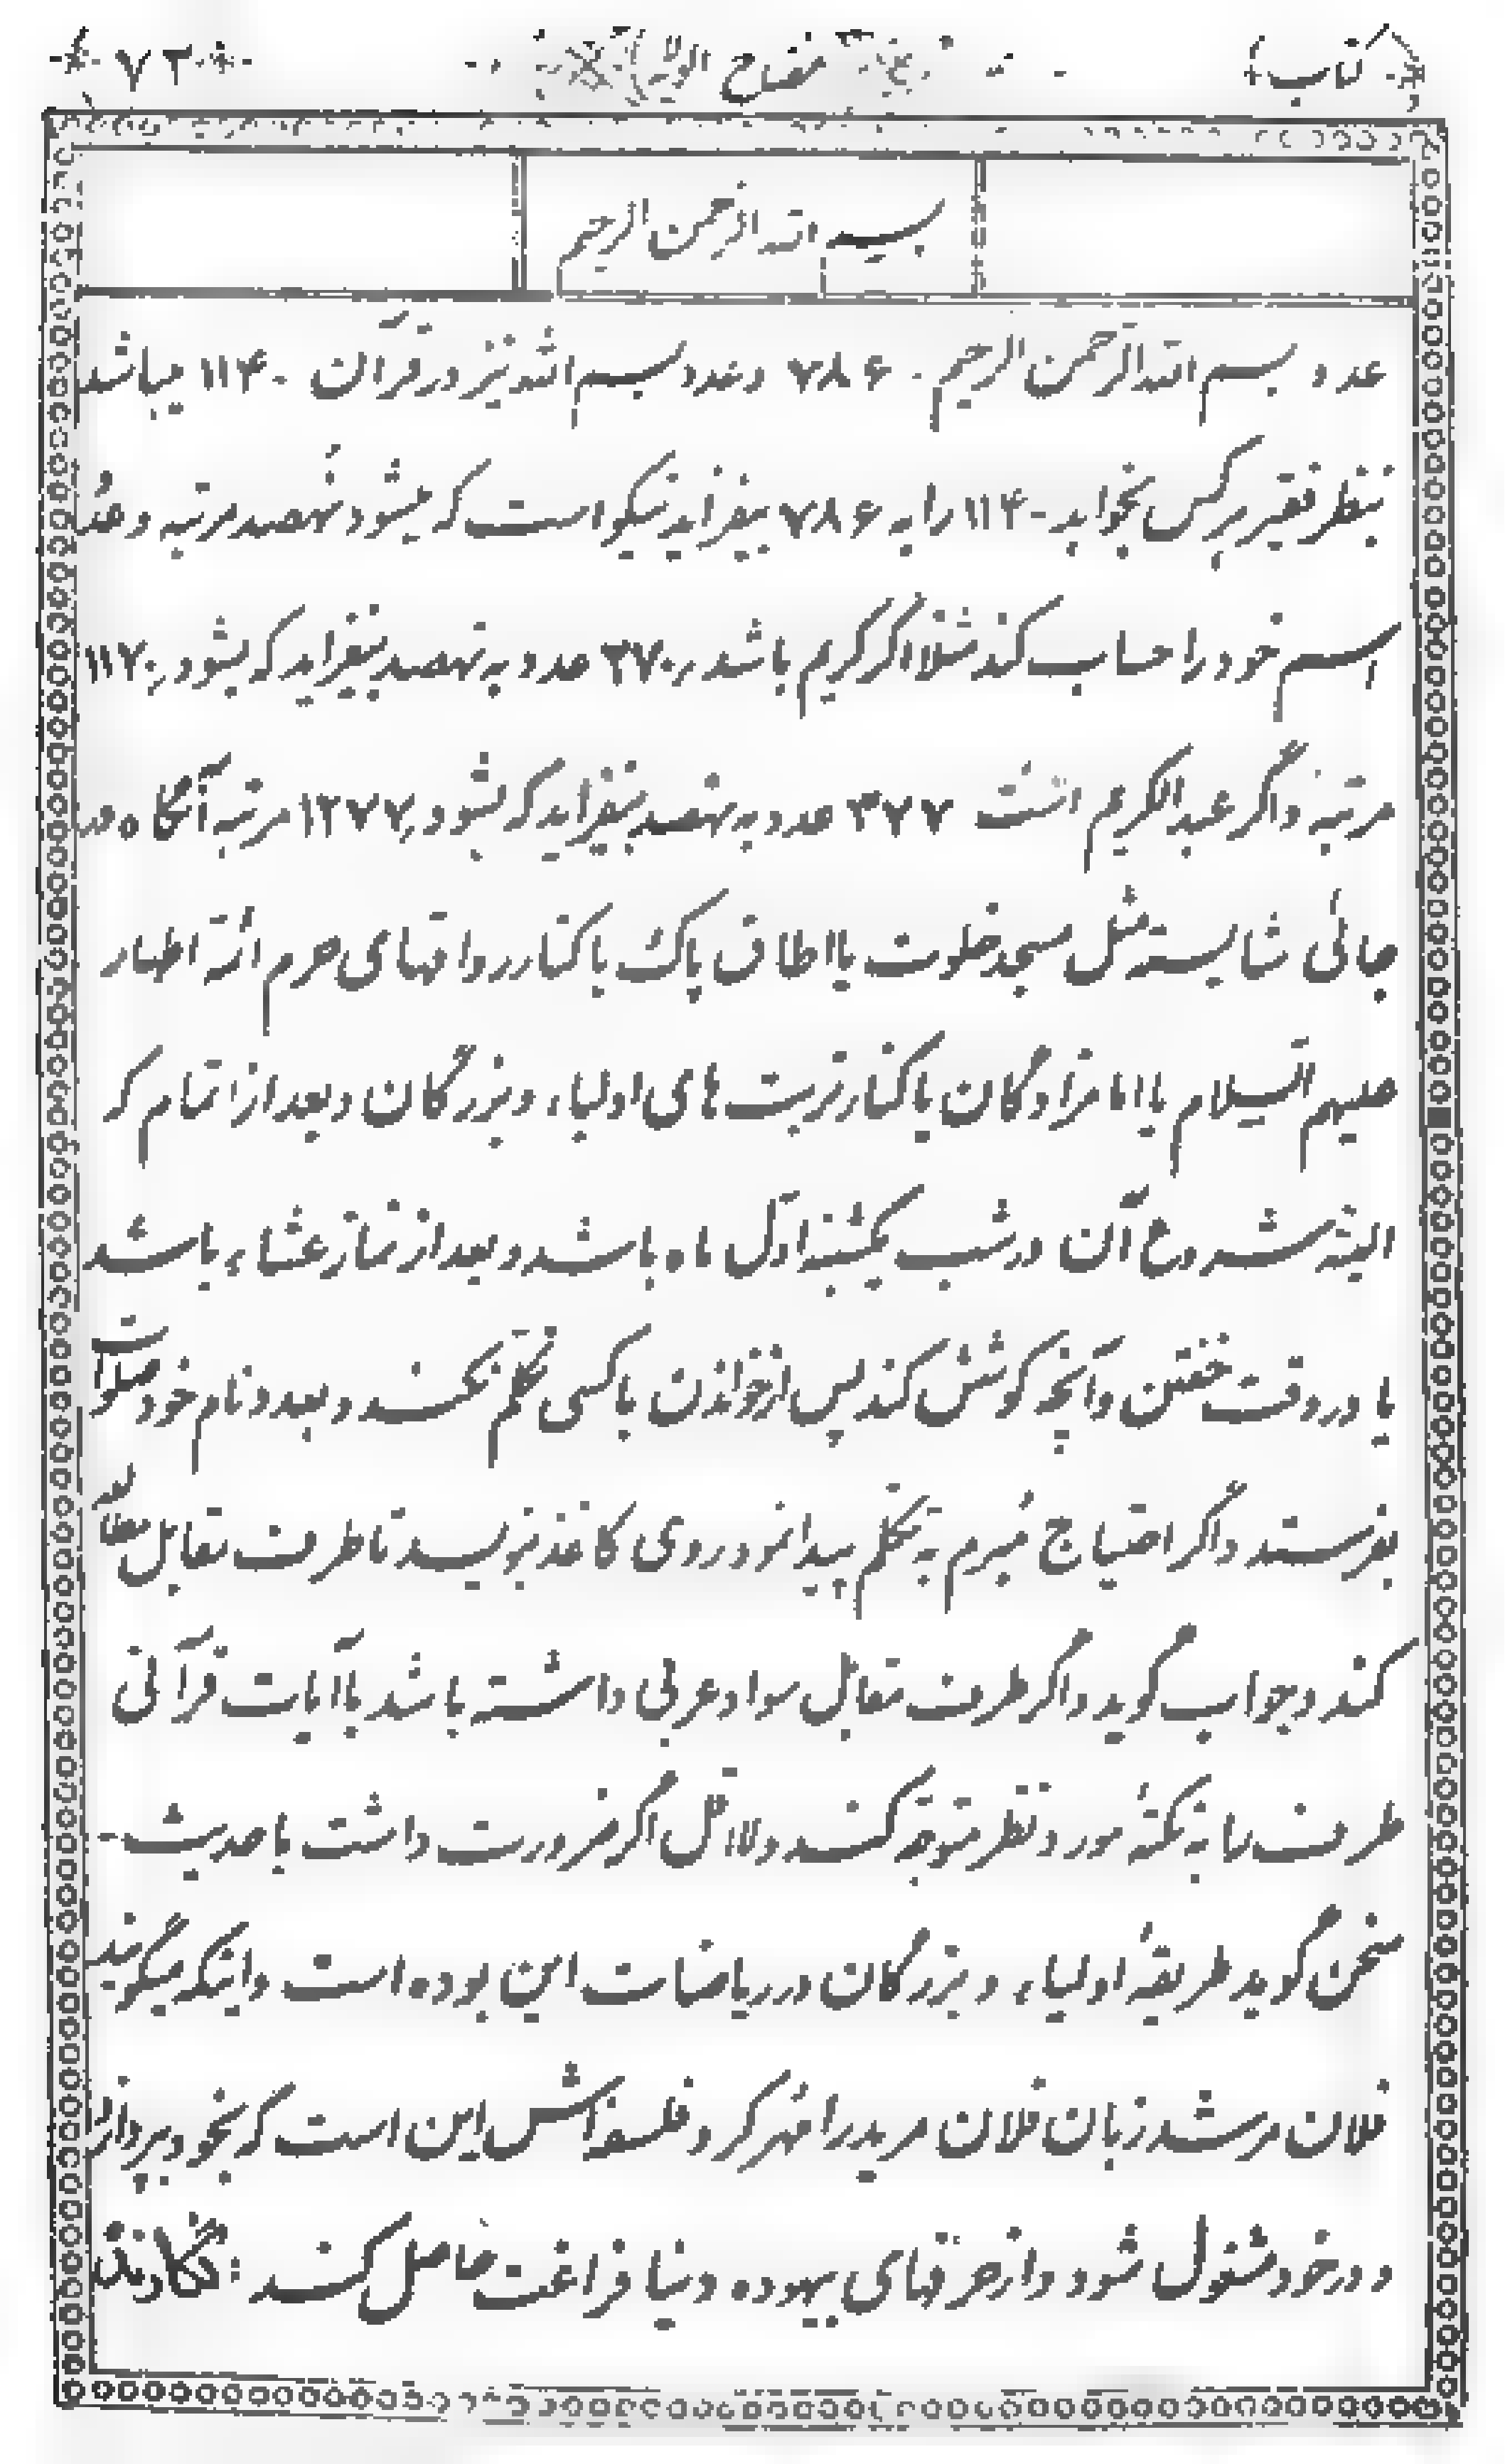 کتاب مفتاح الولایه ۷۲
بسم الله الرحمن الرحیم
عدد بسم الله الرحمن الرحیم ۷۸۶ و عدد بسم الله نیز در قرآن ۱۱۴ میباشد
بنظر فقیر هر کس بخواهد ۱۱۴ را به ۷۸۶ بیفزاید نیکو است که میشود نهصد مرتبه و عدد
اسم خود را حساب کند مثلا اگر کریم باشد ۲۷۰ عدد به نهصد بیفزاید که بشود ۱۱۷۰
مرتبه و اگر عبدالکریم است ۳۷۷ عدد به نهصد بیفزاید که بشود ۱۲۷۷ مرتبه آنگاه در
جائی شایسته مثل مسجد خلوت یا اطاق پاک یا کنار رواقهای حرم ائمه اطهار
علیهم السلام یا امامزادگان یا کنار تربت های اولیاء و بزرگان و بعد از اتمام کر
البته شروع آن در شب یکشنبه اول ماه باشد و بعد از نماز عشاء باشد
یا در وقت خفتن و آنچه کوشش کند پس از خواندن با کسی تکلم نکند و بعدد نام خود صلوات
بفرستد و اگر احتیاج مبرم به تکلم پیدا نمود روی کاغذ بنویسد تا طرف مقابل مطالعه
کند و جواب گوید و اگر طرف مقابل سواد عربی داشته باشد با آیات قرآنی
طرف را به نکتهٔ مورد نظر متوجه کند و لااقل اگر ضرورت داشت با حدیث -
سخن گوید طریقهٔ اولیاء و بزرگان در ریاضات این بوده است و اینکه میگویند
فلان مرشد زبان فلان مرید را مهر کرد فلسفه اش این است که بخود پردازد
و در خود مشغول شود و از حرفهای بیهوده دنیا فراغت حاصل کند :